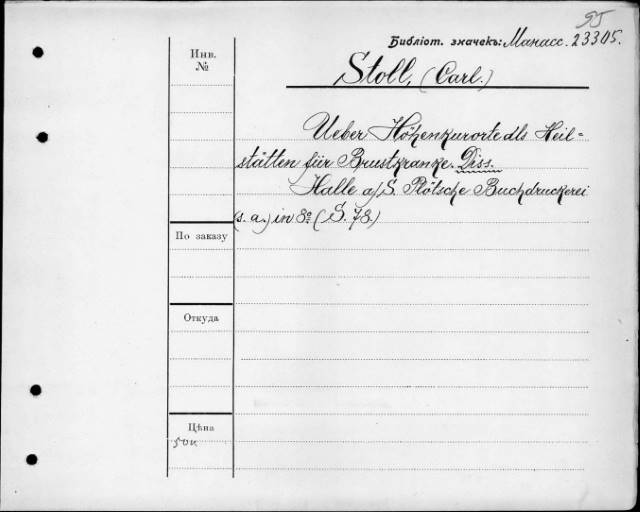 Библіот. значекъ: Манасс. 23305.
Инв.
№
Stoll, (Carl.)
Ueber Höhenkurorte als Heil=
stätten für Brustkranke. Diss.
Halle a/S. Plötsche Buchdruckerei
(s. a.) in 8º (S. 78.)
По заказу
Откуда
Цѣна
50к